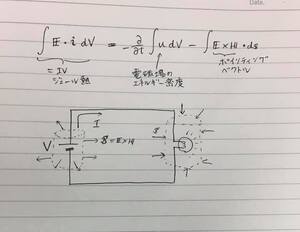 Date.
∫ E・i dV = -∂/∂t ∫ u dV - ∫ E×H・ds
= IV
ジュール熱
電磁場の
エネルギー密度
ポインティング
ベクトル
I
V
S = E×H
S